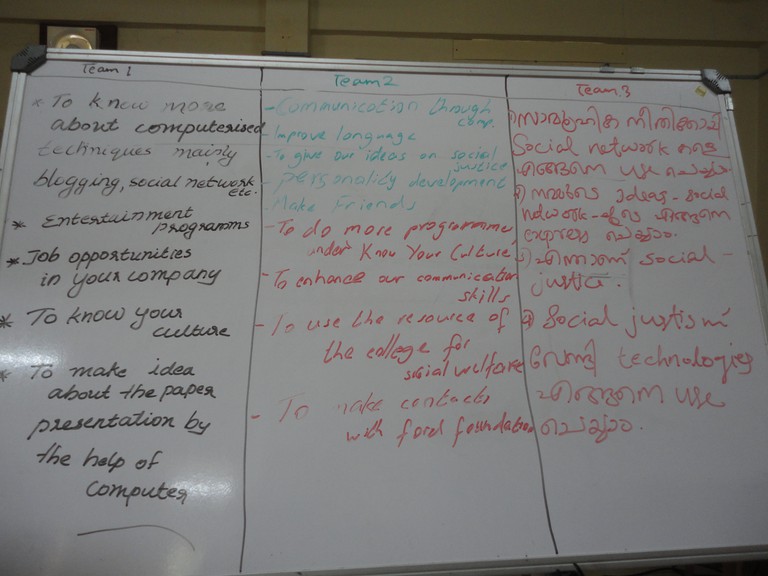 Team 1
* To know more
about computerised
techniques mainly
blogging, social network
etc.
* Entertainment
programms
* Job opportunities
in your company
* To know your
culture
* To make idea
about the paper
presentation by
the help of
computer
Team 2
- Communication through
comp.
- Improve language
- To give our ideas on social
justice
- personality development
- Make Friends
- To do more programme
under Know Your Culture
- To enhance our communication
skills
- To use the resource of
the college for
social welfare
- To make contacts
with ford foundation
Team 3
സാമൂഹിക നീതിക്കായി
Social network കളെ
എങ്ങനെ use ചെയ്യാം
നമ്മുടെ Ideas - social
network - ലൂടെ എങ്ങനെ
express ചെയ്യാം.
എന്താണ് social -
justice.
Social justism
വേണ്ടി technologies
എങ്ങനെ use
ചെയ്യാം.